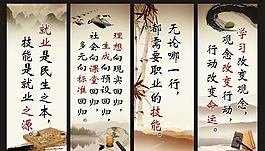 就业是民生之本，
技能是就业之源。
理想向现实回归，
生成向预设回归，
社会向课堂回归，
多元向标准回归。
无论哪一行，
都需要职业的技能。
学习改变观念，
观念改变行动，
行动改变命运。